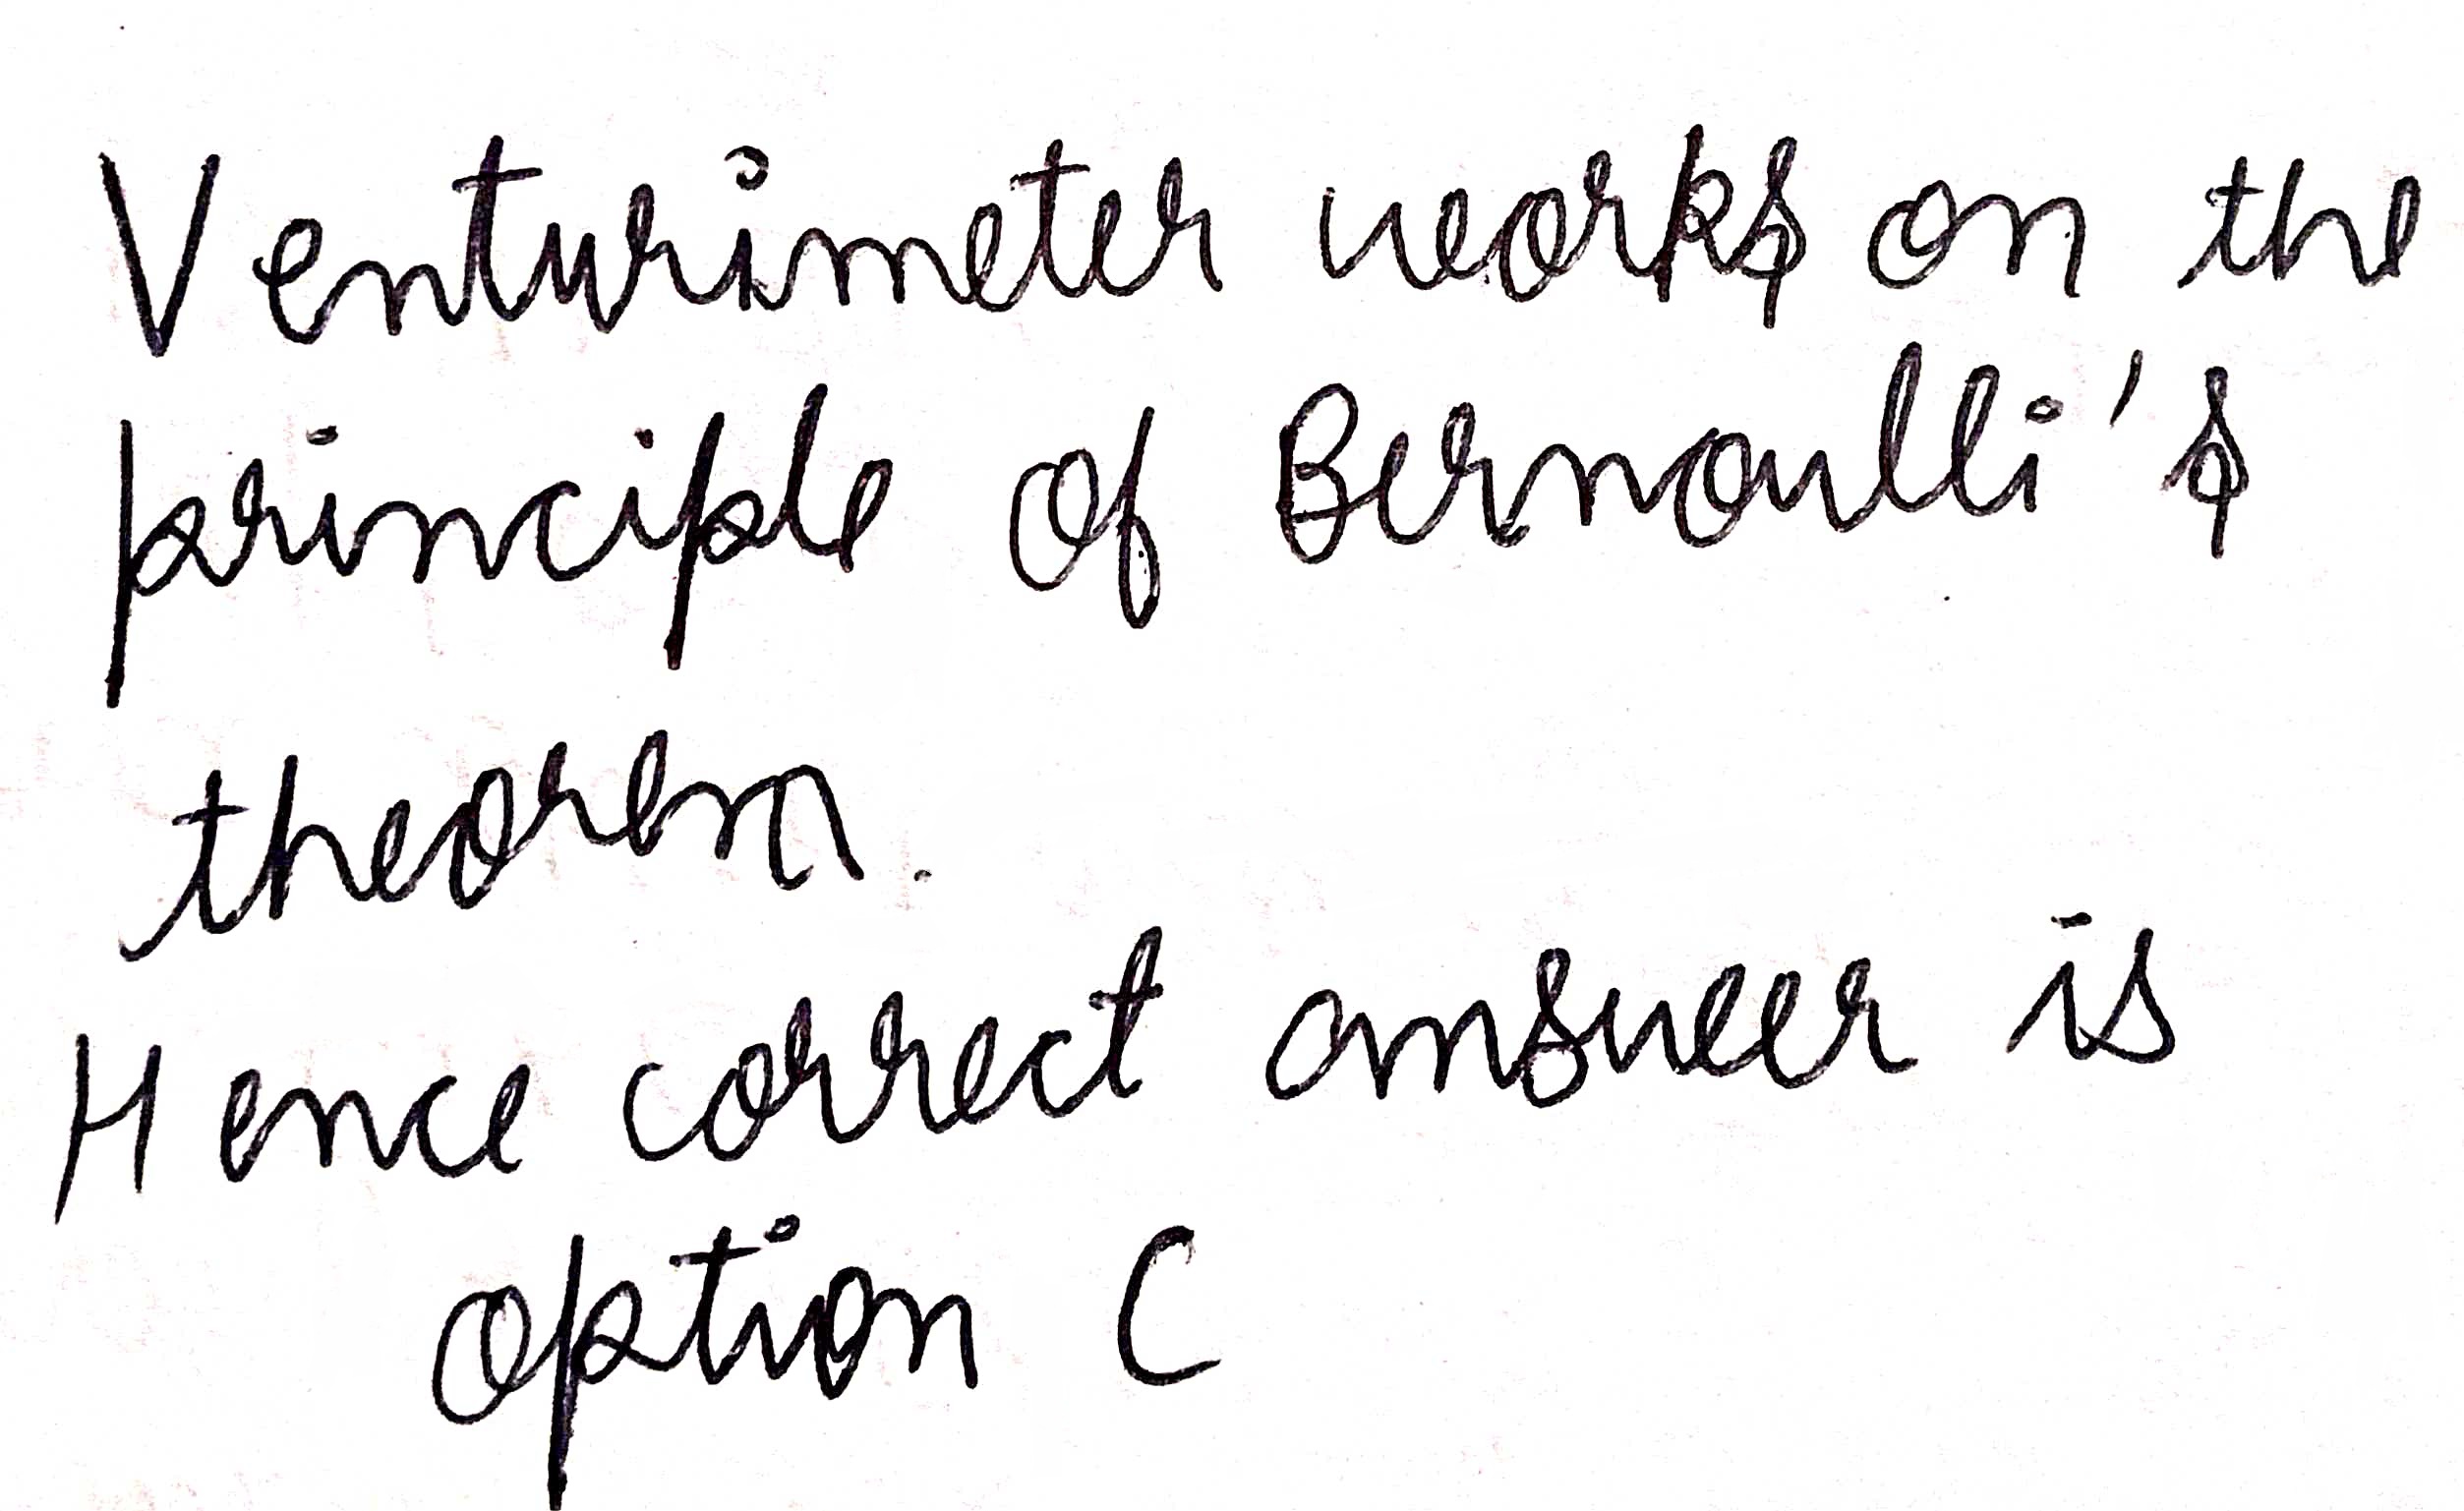 Venturimeter works on the
principle of Bernoulli's
theorem.
Hence correct answer is
option C